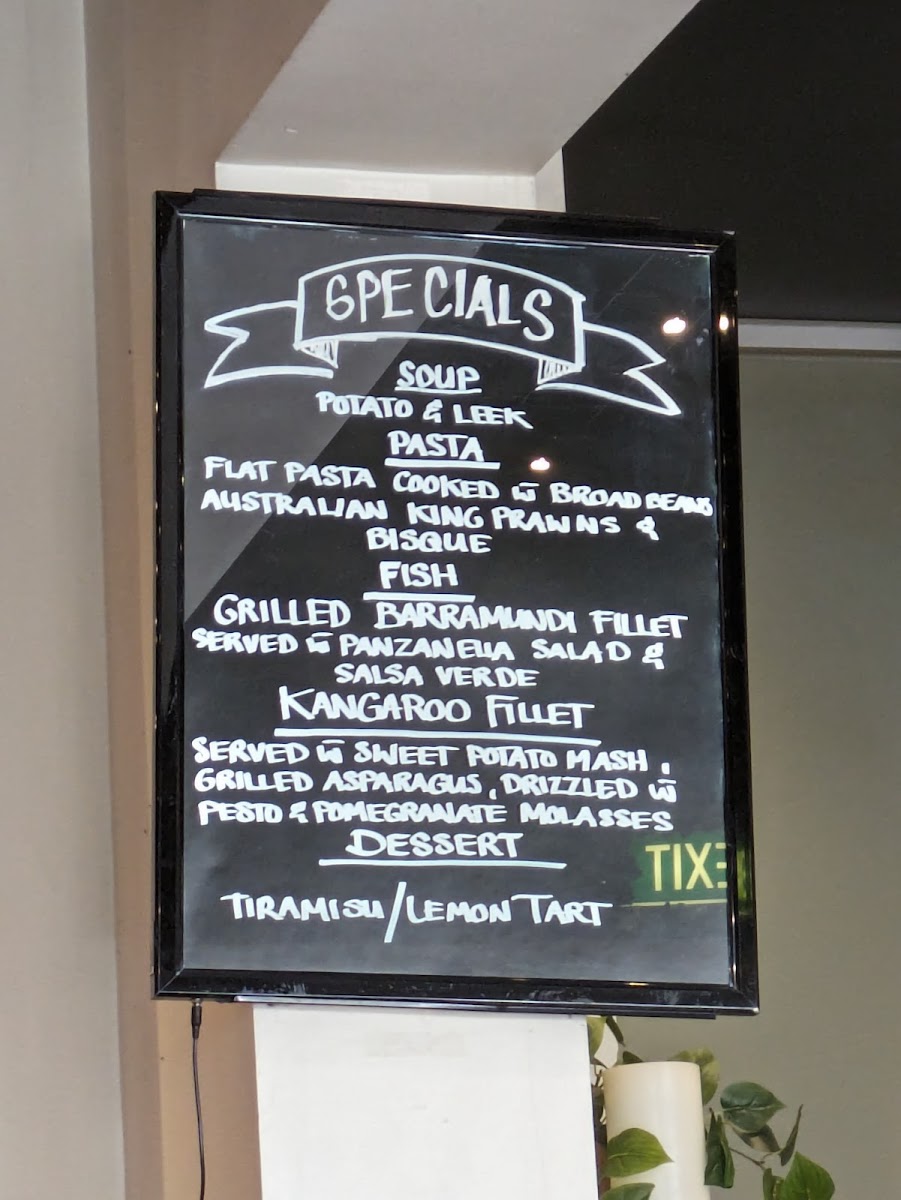 SPECIALS
SOUP
POTATO & LEEK
PASTA
FLAT PASTA COOKED w̅ BROAD BEANS
AUSTRALIAN KING PRAWNS &
BISQUE
FISH
GRILLED BARRAMUNDI FILLET
SERVED w̅ PANZANELLA SALAD &
SALSA VERDE
KANGAROO FILLET
SERVED w̅ SWEET POTATO MASH,
GRILLED ASPARAGUS, DRIZZLED w̅
PESTO & POMEGRANATE MOLASSES
DESSERT
EXIT
TIRAMISU/LEMON TART